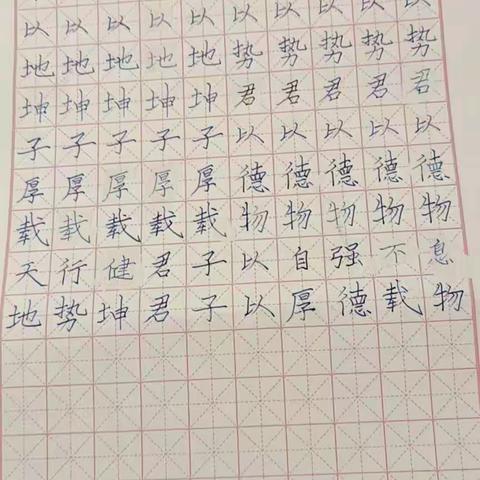 以以以以以以以以以以
地地地地地势势势势势
坤坤坤坤坤君君君君君
子子子子子以以以以以
厚厚厚厚厚德德德德德
载载载载载物物物物物
天行健君子以自强不息
地势坤君子以厚德载物